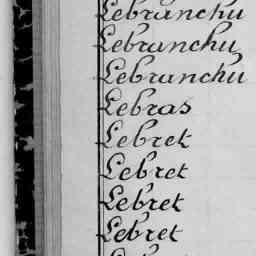 Lebranchu
Lebranchu
Lebranchu
Lebras
Lebret
Lebret
Lebret
Lebret